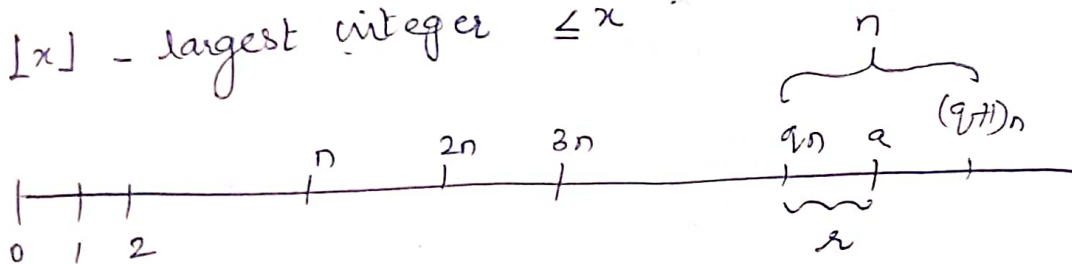 ⌊x⌋ - largest integer ≤ x
n
n 2n 3n qn a (q+1)n
0 1 2 r